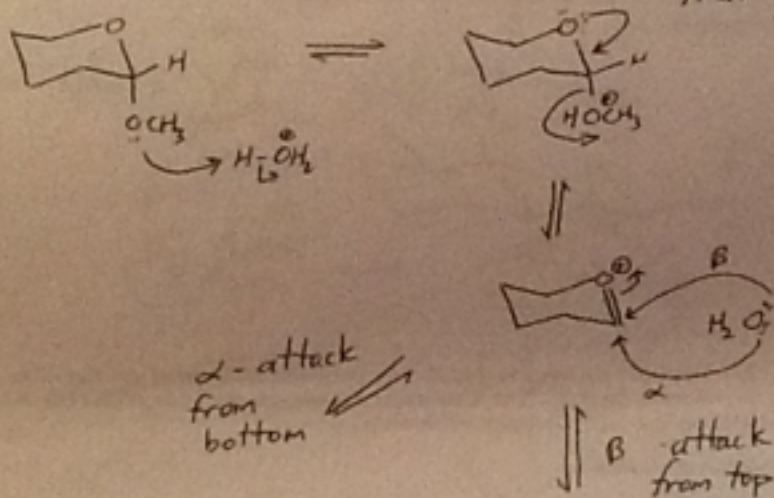 O
H
OCH3
H-OH2
⊕
O
H
HOCH3
⊕
O
⊕
β
H2O
α
α-attack
from
bottom
β attack
from top